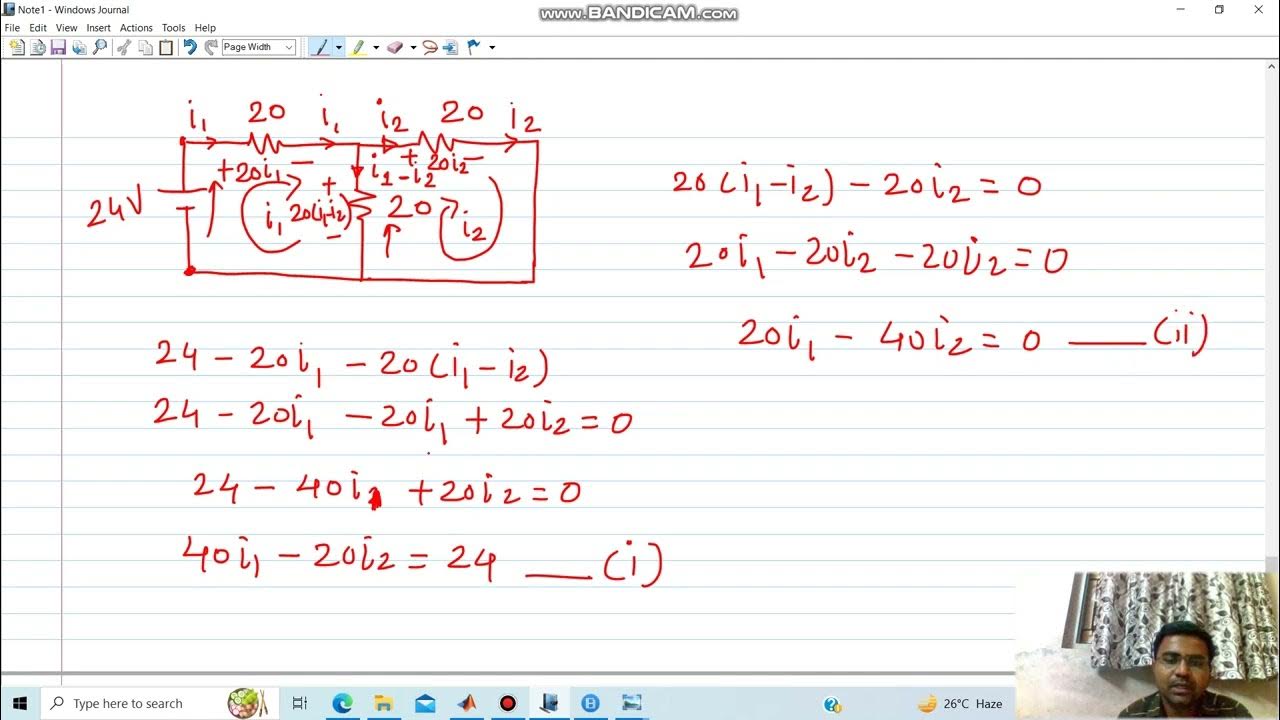 Note1 - Windows Journal
www.BANDICAM.com
File Edit View Insert Actions Tools Help
Page Width
i₁ 20 i₁ i₂ 20 i₂
+20i₁ −
i₁−i₂
+ 20i₂ −
24V
i₁
+
20(i₁-i₂)
−
20
i₂
20(i₁-i₂) − 20i₂ = 0
20i₁ − 20i₂ − 20i₂ = 0
20i₁ − 40i₂ = 0 —— (ii)
24 − 20i₁ − 20(i₁ − i₂)
24 − 20i₁ − 20i₁ + 20i₂ = 0
24 − 40i₁ + 20i₂ = 0
40i₁ − 20i₂ = 24 —— (i)
Type here to search
26°C Haze